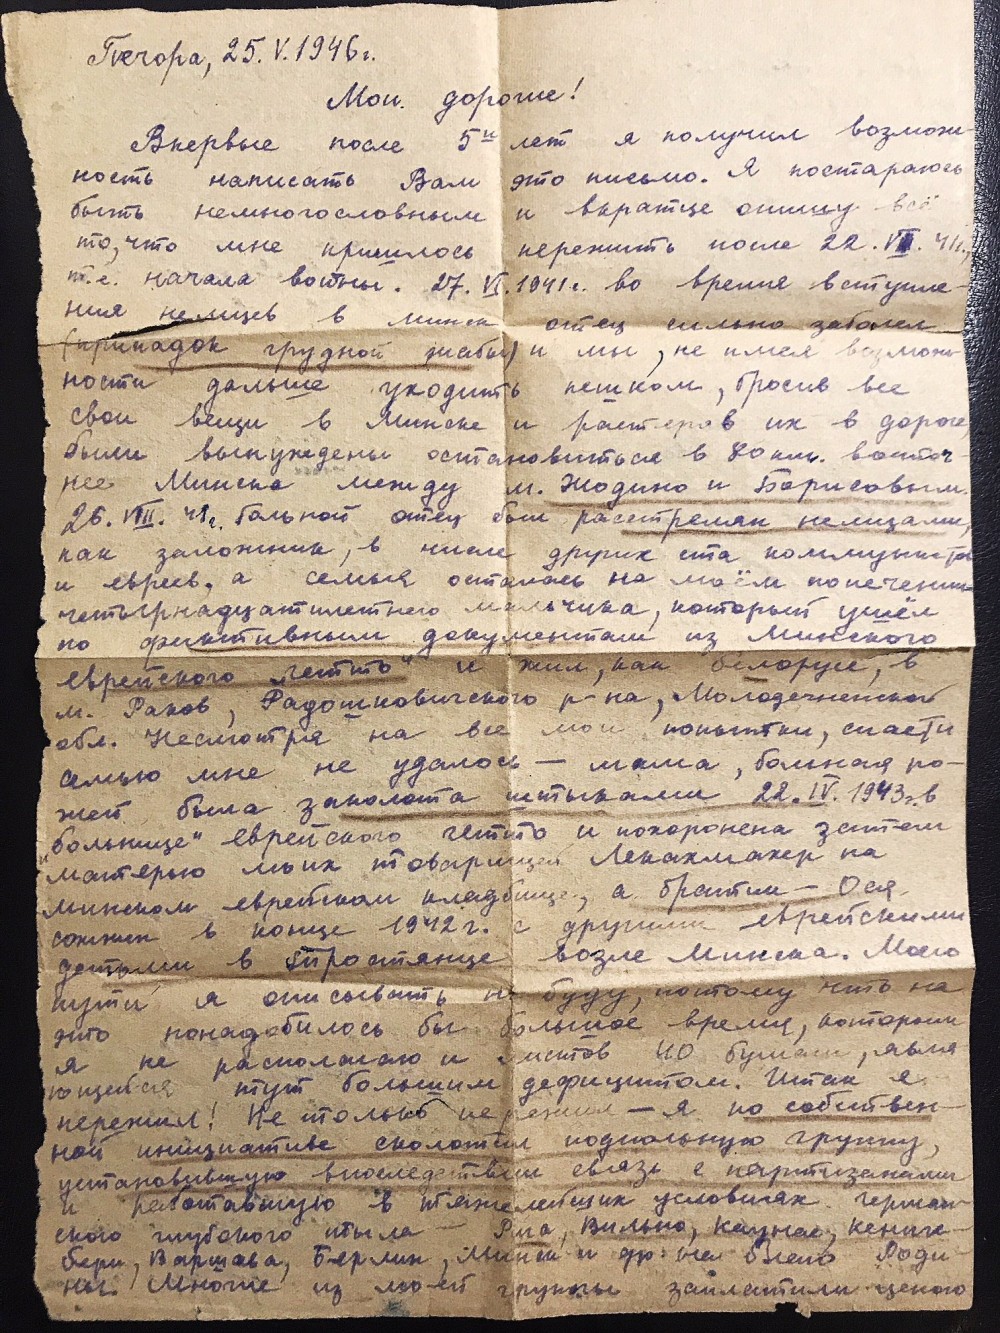 Печора, 25.V.1946г.
Мои дорогие!
Впервые после 5и лет я получил возмож-
ность написать Вам это письмо. Я постараюсь
быть немногословным и вкратце опишу всё
то, что мне пришлось пережить после 22. 41г.,
т.е. начала войны. 27.VI.1941г. во время вступле-
ния немцев в Минск отец сильно заболел
(припадок грудной жабы) и мы, не имея возмож-
ности дальше уходить пешком, бросив все
свои вещи в Минске и растеряв их в дороге,
были вынуждены остановиться в км. восточ-
нее Минска между м. Жодино и Борисовым.
26.VIII.41г. больной отец был расстрелян немцами,
как заложник, в числе других ста коммунистов
и евреев, а семья осталась на моём попечении
четырнадцатилетнего мальчика, который ушёл
по фиктивным документам из Минского
еврейского гетто" и жил, как белорус, в
м. Раков, Радошковичского р-на, Молодечненской
обл. Несмотря на все мои попытки, спасти
семью мне не удалось — мама, больная ро-
жей была заколота штыками 22.IV.1943г. в
"больнице" еврейского гетто и похоронена затем
матерью моих товарищей Лекахмахер на
минском еврейском кладбище, а братик — Ося
сожжён в конце 1942г. с другими еврейскими
детьми в Тростянце возле Минска. Моего
пути я описывать не буду, потому что на
это понадобилось бы большое время, которым
я не располагаю и листов 40 бумаги, явля
ющейся тут большим дефицитом. Итак я
пережил! Не только пережил — я по собствен-
ной инициативе сколотил подпольную группу,
установившую впоследствии связь с партизанами
и работавшую в тяжелейших условиях герман-
ского глубокого тыла — Рига, Вильно, Каунас, Кениге-
берг, Варшава, Берлин, Минск и др. на благо Роди-
ны. Многие из моей группы заплатили ценою